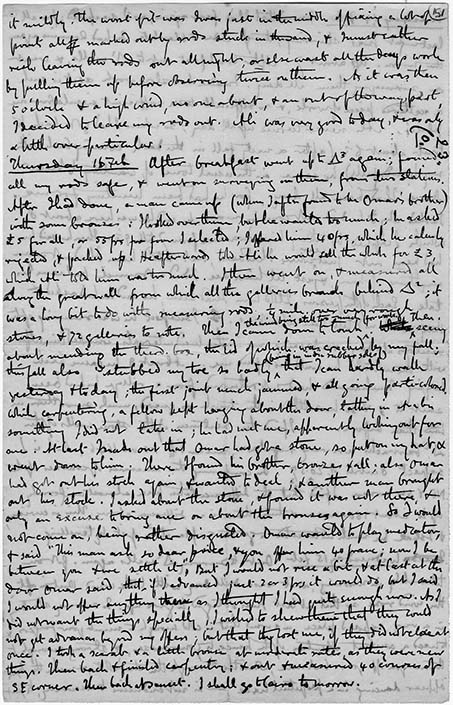 51
it mildly the worst fix was I was just in the middle of fixing a lot of
point all marked out by rods stuck in the sand, & I must either
risk leaving the rods out all night, or else waste all the days work
by pulling them up before observing twice on them. As it was then
5 o'clock & a high wind, no one about, & an out of the way part,
I decided to leave my rods out. Ali was very good to day, & was only
a little over particular.
Thursday 16 Feb After breakfast went up to Δ3 again; found
all my rods safe, & went on surveying on them, from two stations.
After I had done, a man came up (whom I after found to be Omar's brother)
with some bronzes: I looked over them, but he wanted too much; he asked
£5 for all, or 55 frs for four I selected; I offered him 40 frs, which he calmly
rejected, & packed up. He afterwards told Ali he would sell the whole for £3
which Ali told him was too much. I then went on, & measured all
along the great wall from which all the galleries branch behind Δ2; it
was a long bit to do with measuring rods,
stones, & 72 galleries to note. Then I came down to lunch, seeing
about mending the theod. box, the lid of which was cracked by my fall;
the fall also stubbed my toe so badly, that I can hardly walk
yesterday & to day; the first joint much jammed & all going
While carpentering, a fellow kept hanging about the door, talking in at about
something I did not take in; he had met me, apparently looking out for
me. At last I made out that Omar had got a stone, so put on my hat &
went down to him; There I found his brother, bronzes & all; also Omar
had got out his stock again & wanted to deal; & another man brought
out his stock. I asked about the stone & found it was not there, &
only an excuse to bring me on about the bronzes again. So I would
not come on, being rather disgusted. Omar wanted to play mediator,
& said "This man ask so dear price & you offer him 40 franc; now I be
between you & me settle it"; But I would not rise a bit, & at last at the
door Omar said, that if I advanced just 2 or 3 frs it would do, but I said
I would not offer anything as I thought I had quite enough now. As I
did not want the things specially I wished to shew them that they could
not get advances beyond my offers; but that they lost me, if they did not close at
once. I took a scarab & a little bronze at moderate rate, as they were new
things. Then back & finished carpentry; & out & measured 40 courses of
SE corner. Then back at sunset. I shall get to morrow.